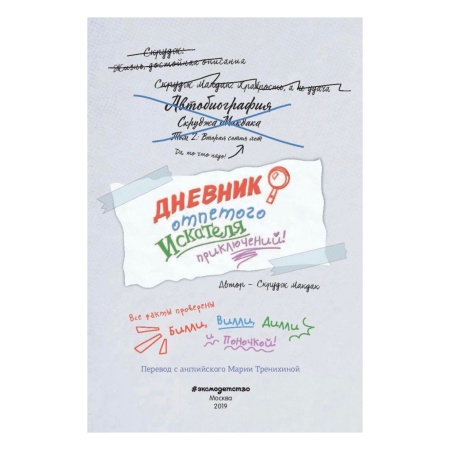 Скрудж:
Жизнь, достойная описания
Скрудж Макдак: Храбрость, а не удача
Автобиография
Скруджа Маквака
Том 2: Вторая сотня лет
Да, то что надо!
ДНЕВНИК
отпетого
Искателя
приключений!
Автор - Скрудж Макдак
Все факты проверены
Билли, Вилли, Дилли
и Поночкой!
Перевод с английского Марии Тренихиной
#эксмодетство
Москва
2019